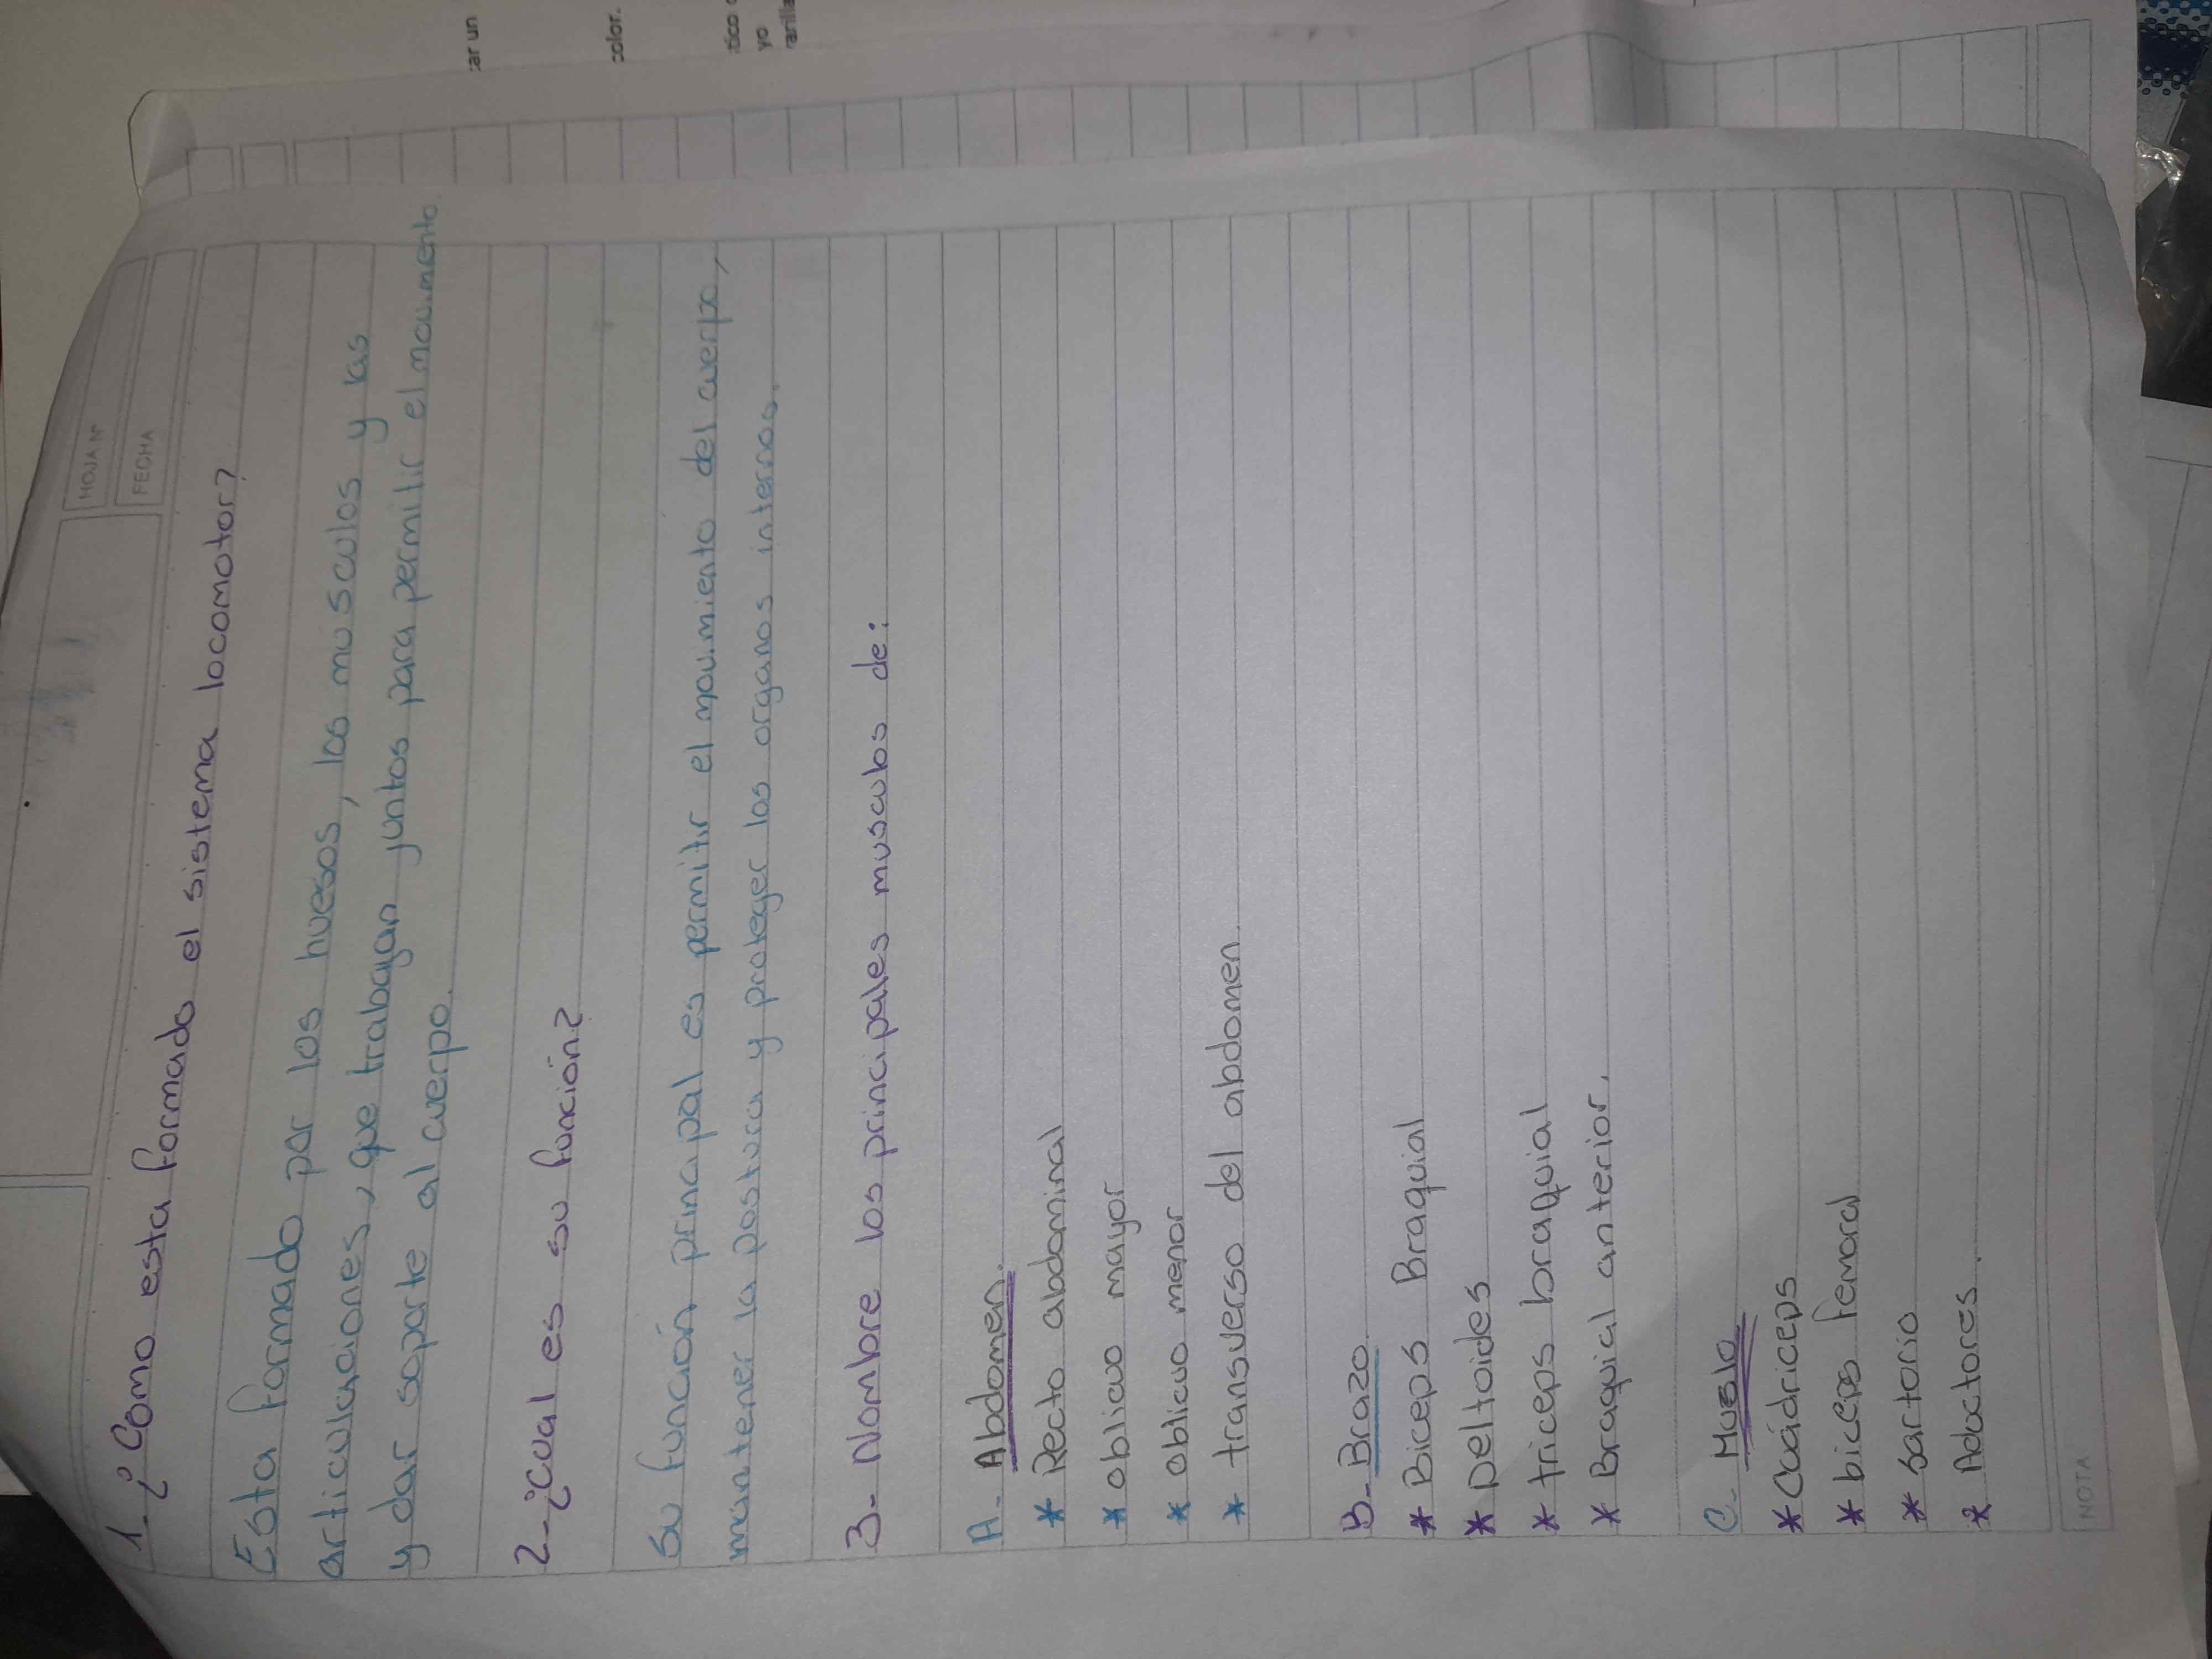 HOJA Nº
FECHA
1-¿Como esta formado el sistema locomotor?
Esta formado por los huesos, los músculos y las
articulaciones, que trabajan juntos para permitir el movimiento
y dar soporte al cuerpo.
2-¿Cual es su función?
Su función principal es permitir el movimiento del cuerpo,
mantener la postura y proteger los organos internos.
3- Nombre los principales musculos de:
A- Abdomen.
* Recto abdominal
* oblicuo mayor
* oblicuo menor
* transverso del abdomen.
B- Brazo.
* Biceps Braquial
* Deltoides
* triceps braquial
* Braquial anterior.
C- Muslo
* Cuádriceps
* biceps femoral
* sartorio
* Aductores.
NOTA
ar un
color.
tico
yo
arilla